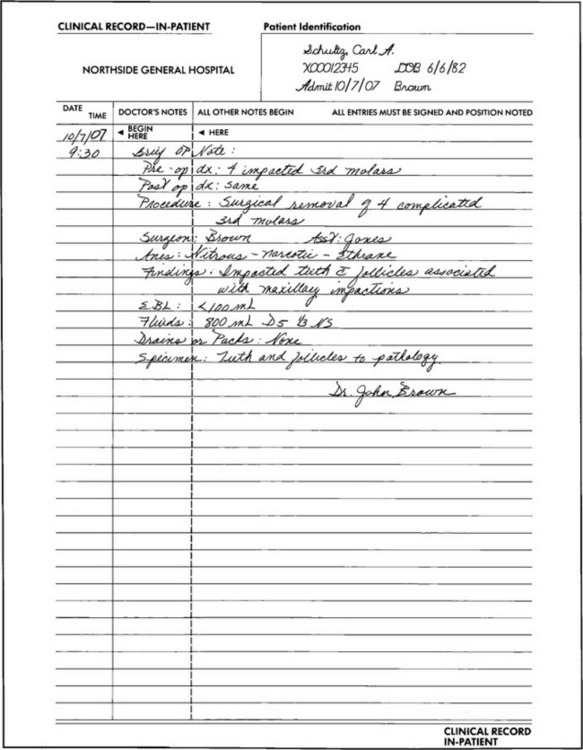 CLINICAL RECORD—IN-PATIENT
Patient Identification
Schultz, Carl A.
X00012345 DOB 6/6/82
Admit 10/7/07 Brown
NORTHSIDE GENERAL HOSPITAL
DATE TIME DOCTOR'S NOTES ALL OTHER NOTES BEGIN ALL ENTRIES MUST BE SIGNED AND POSITION NOTED
10/7/07 ◄ BEGIN HERE ◄ HERE
9:30 Brief OP Note:
Pre-op dx: 4 impacted 3rd molars
Post op dx: same
Procedure: Surgical removal of 4 complicated
3rd molars
Surgeon: Brown Ass't: Jones
Anes: Nitrous-narcotic-Ethrane
Findings: Impacted teeth c̄ follicles associated
with maxillary impactions
E.BL: <100 mL
Fluids: 800 mL D5 1/3 NS
Drains or Packs: None
Specimen: Teeth and follicles to pathology.
Dr. John Brown
CLINICAL RECORD
IN-PATIENT